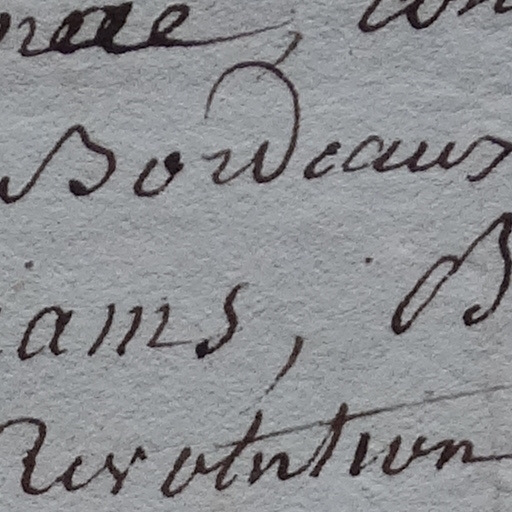 Bordeaux
iams, B
Revolution